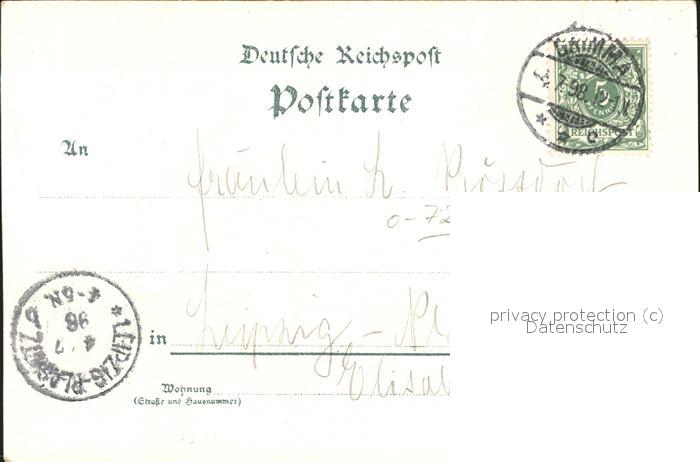 Deutsche Reichspost
Postkarte
GRIMMA
4. 7. 98. 12-1 N.
* a c *
REICHSPOST
An
Fräulein
o-72
privacy protection (c)
Datenschutz
in Leipzig - Pl
Elisa
LEIPZIG-PL
4. 7.
98
4-5N.
Wohnung
(Straße und Hausnummer)